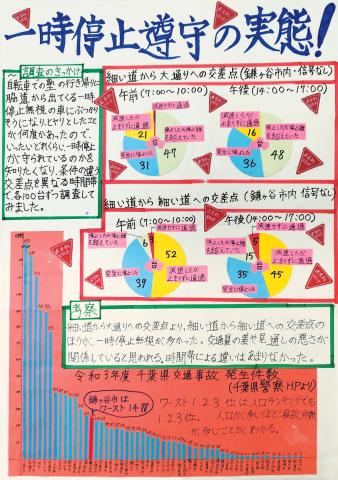 一時停止遵守の実態!
調査のきっかけ
自転車での塾の行き帰りに
脇道から出てくる一時
停止無視の車にぶつかり
そうになり、ヒヤリとしたこ
とが何度かあったので、
いったいどれくらい一時停止
が守られているのかを
知りたくなり、条件の違う
交差点を異なる時間帯
で、各100台ずつ調査して
みました。
細い道から大通りへの交差点(鎌ヶ谷市内・信号なし)
午前(7:00〜10:00)
午後(14:00〜17:00)
減速せずに通過
減速したが
止まらずに通過
21
停止したが停止線
を越えていた
47
完全に停止した
31
台
減速せずに通過
減速したが
止まらずに通過
16
停止したが停止線
を越えていた
48
完全に停止した
36
台
細い道から細い道への交差点(鎌ヶ谷市内 信号なし)
午前(7:00〜10:00)
午後(14:00〜17:00)
減速せずに通過
停止したが停止線
を越えていた
6
52
減速したが
止まらずに通過
完全に停止した
39
台
減速せずに通過
5
停止したが停止線
を越えていた
15
台
減速したが
止まらずに通過
45
完全に停止した
35
考察
細い道から大通りへの交差点より、細い道から細い道への交差点の
ほうが、一時停止無視が多かった。交通量の差や見通しの悪さが
関係していると思われる。時間帯による違いはあまりなかった。
令和3年度 千葉県交通事故 発生件数
(千葉県警察HPより)
鎌ヶ谷市は
ワースト14位
ワースト1.2.3位は人口ランキングでも
1.2.3位。
人口が多いほど事故件数
が多いことがわかる。